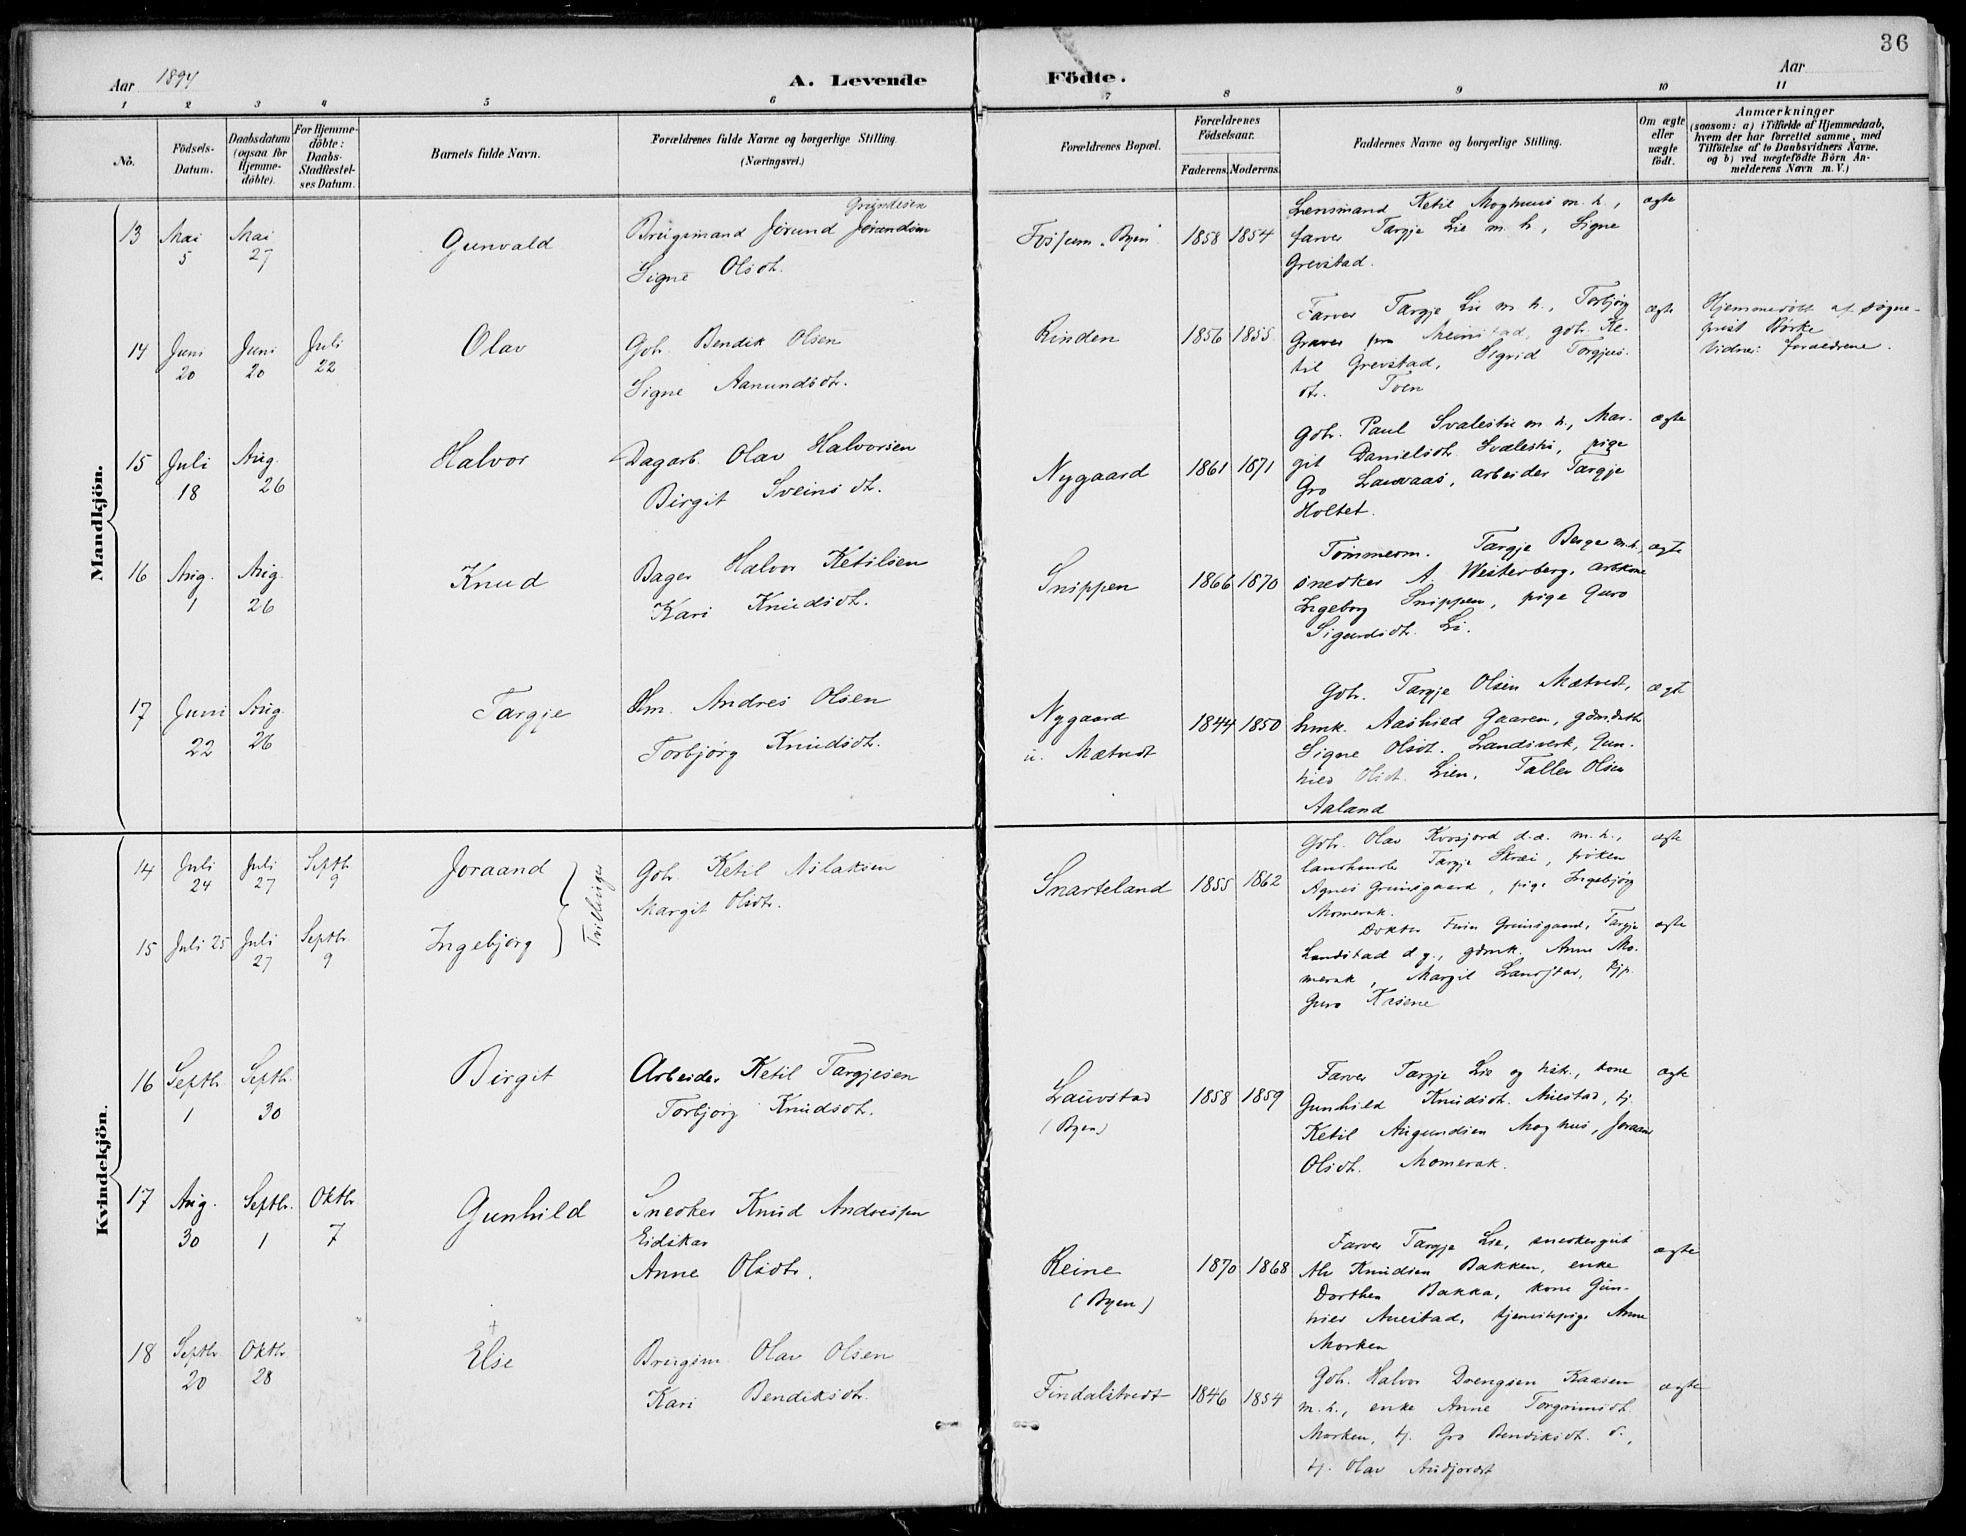 36
Aar 1894
A. Levende Födte.
Aar
1 2 3 4 5 6 7 8 9 10 11
No.
Födsels-Datum.
Daabsdatum (ogsaa for Hjemme-döbte).
For Hjemme-döbte: Daabs-Stadfæstel-ses Datum.
Barnets fulde Navn.
Forældrenes fulde Navne og borgerlige Stilling. (Næringsvei.)
Forældrenes Bopæl.
Forældrenes Födselsaar.
Faderens. Moderens.
Faddernes Navne og borgerlige Stilling.
Om ægte eller uægte födt.
Anmærkninger
(saasom: a) i Tilfælde af Hjemmedaab,
hvem der har forrettet samme, med
Tilföielse af to Daabsvidners Navne,
og b) ved uægtefödte Börn An-
melderens Navn m. V.)
Mandkjön.
13 Mai 5 Mai 27 Gunvald
Grundesen
Brugsmand Jörund Jörundsen
Signe Olsdt.
Fossum "Byen" 1858 1854
Lensmand Ketil Moghus m. h.,
farver Targje Lie m. h., Signe
Grevstad.
ægte
14 Juni 20 Juni 20 Juli 22 Olav
Gbr. Bendik Olsen
Signe Aanundsdtr.
Rinden 1856 1855
Farver Targje Lie m. h., Torbjörg
gbr. Ke-
til Grevstad, Sigrid Torgjus-
dtr. Tven
ægte
Hjemmedöbt af sogne-
prest Börke
Vidner: forældrene.
15 Juli 18 Aug. 26 Halvor
Dagarb. Olav Halvorsen
Birgit Sveinsdtr.
Nygaard 1861 1871
Gbr. Paul Svalestu m. h., Mar-
git Danielsdtr. Svalestu, pige
Gro Lauvaas, arbeider Targje
Holtet.
ægte
16 Aug. 1 Aug. 26 Knud
Bager Halvor Ketilsen
Kari Knudsdtr.
Snippen 1866 1870
Tömmerm. Targje Berge m. h.,
snedker A. Westerberg, arbkone
Ingeborg Snippen, pige Guro
Sigurdsdtr. Li.
ægte
17 Juni 22 Aug. 26 Targje
Hm. Andres Olsen
Torbjörg Knudsdtr.
Nygaard
u. Mætvedt
1844 1850
Gbr. Targje Olsen Mætvedt,
hmk. Aashild Gaaren, gdmdatter
Signe Olsdt. Landsverk, Gun-
hild Olsdt. Lien, Tallev Olsen
Aaland
ægte
Kvindekjön.
14 Juli 24 Juli 27 Septbr. 9 Joraand
Tvillinger
Gbr. Ketil Aslaksen
Margit Olsdtr.
Snarteland 1855 1862
Gbr. Olav Kvosjord d.æ. m. h.,
landhandler Targje Skræi, fröken
Agnes Grimsgaard, pige Ingebjörg
Momerak.
ægte
15 Juli 25 Juli 27 Septbr. 9 Ingebjörg
Doktor Finn Grimsgaard, Targje
Landstad d. y., gdmk. Anne Mo-
merak, Margit Landstad, tjp.
Guro Kasene
ægte
16 Septbr. 1 Septbr. 30 Birgit
Arbeider Ketil Targjesen
Torbjörg Knudsdtr.
Lauvstad
(Byen)
1858 1859
Farver Targje Lie og hstr., kone
Gunhild Knudsdtr. Auestad, tj.
Ketil Augundsen Moghus, Joraand
Olsdt. Momerak.
ægte
17 Aug. 30 Septbr. 1 Oktbr. 7 Gunhild
Snedker Knud Andressen
Eidskar
Anne Olsdtr.
Reine
(Byen)
1870 1868
Farver Targje Lie, snedkergut
Alv Knudsen Bakken, enke
Dorthea Bakka, kone Gun-
hild Auestad, tjenestepige Anne
Morken
ægte
18 Septbr. 20 Oktbr. 28 Else
Brugsm. Olav Olsen
Kari Bendiksdtr.
Findalstvedt 1846 1854
Gbr. Halvor Drengsen Kaasen
m. h., enke Anne Torgrimsdt.
Morken, tj. Gro Bendiksdt. d.,
tj. Olav
ægte